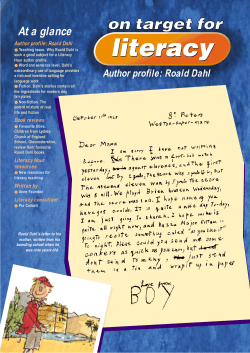 At a glance
Author profile: Roald Dahl
Teaching ideas. Why Roald Dahl is
such a good subject for a Literacy
Hour author profile.
Word and sentence level. Dahl's
extraordinary use of language provides
a rich and inventive setting for
language work
Fiction. Dahl's stories contain all
the ingredients for modern day
fairy tales
Non-fiction. The
weird mixture of real
life and fiction
Book reviews
Favourite titles.
Children from Lydlea
Church of England
School, Gloucestershire,
review their favourite
Roald Dahl books
Literacy hour
resources
New resources for
literacy teaching
Written by
Anne Faundez
Literacy consultant
Pie Corbett
Roald Dahl's letter to his
mother, written from his
boarding school when he
was nine years old.
on target for
literacy
Author profile: Roald Dahl
October 11th
St Peters
Weston-super-mare
Dear Mama
I am sorry I have not writting
before. There was a first
yesterday, against
eleven led by I goal, the score was 2 goals to 1, but
the second eleven won by 1 goal, the score
was 1 nil. We played Brian on Wednesday,
and the score was too. I hope none of you
have got coulds. It is quite a nice day to-day,
I am just going to church. I hope mike is
quite all right now, and Major Cottam is
going to recite something caled "as you like it"
To night. Please could you send me some
conkers as quick as you can, but
dont send to meny, just send
them in a tin and wrap it up in paper
Love from
BOY